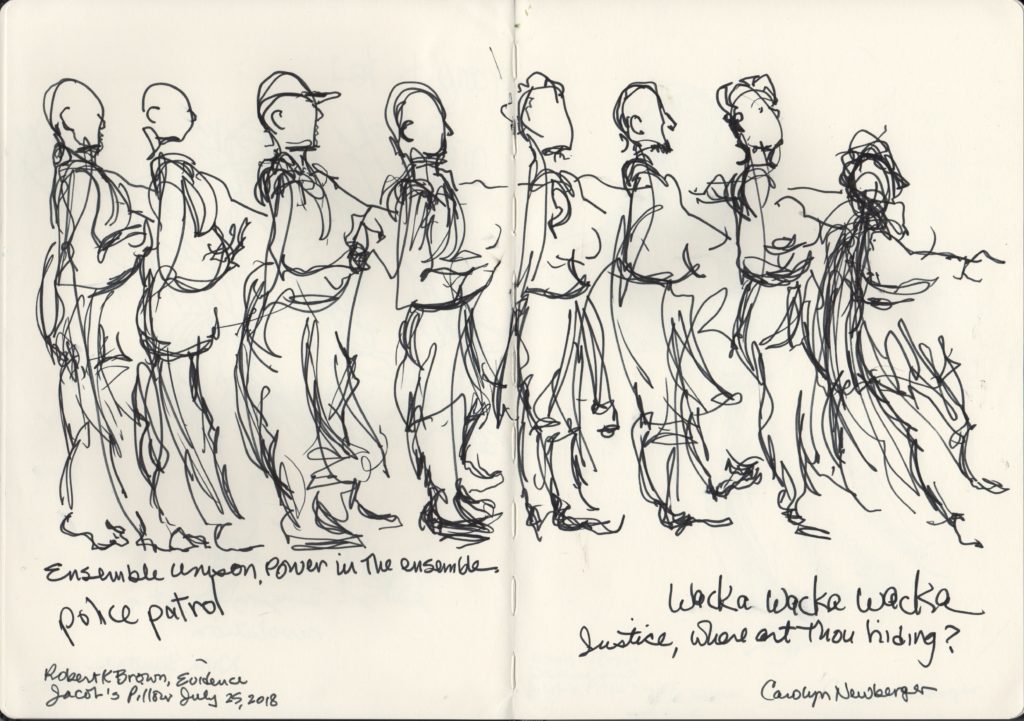 Ensemble unyson, Power in The ensemble.
police patrol
Wacka Wacka Wacka
Justice, where art Thou hiding?
Robert K Brown, Evidence
Jacob's Pillow July 25, 2018
Carolyn Newberger